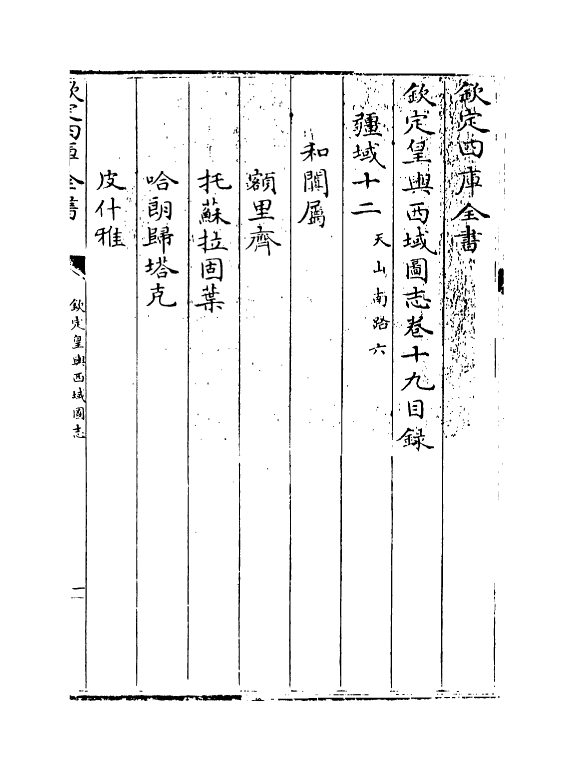 欽定四庫全書
欽定皇輿西域圖志卷十九目録
疆域十二 天山南路六
和闐屬
額里齊
托蘇拉固葉
哈朗歸塔克
皮什雅
欽定四庫全書 欽定皇輿西域圖志 一